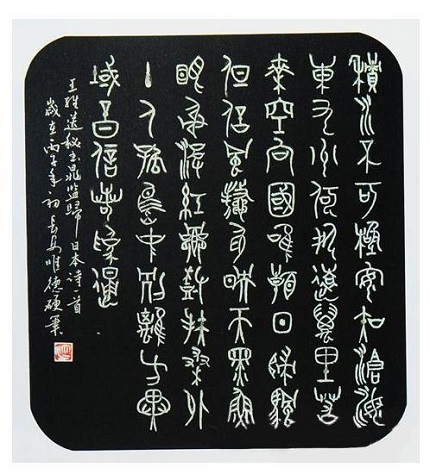 積水不可極安知滄海
東九州何處遠萬里若
乘空向國唯看日歸帆
但信風鰲身映天黑魚
眼射波紅鄉樹扶桑外
主人孤島中別離方異
域音信若為通
王維送秘書晁監歸日本詩一首
歲在丙子年初長安唯德硬筆